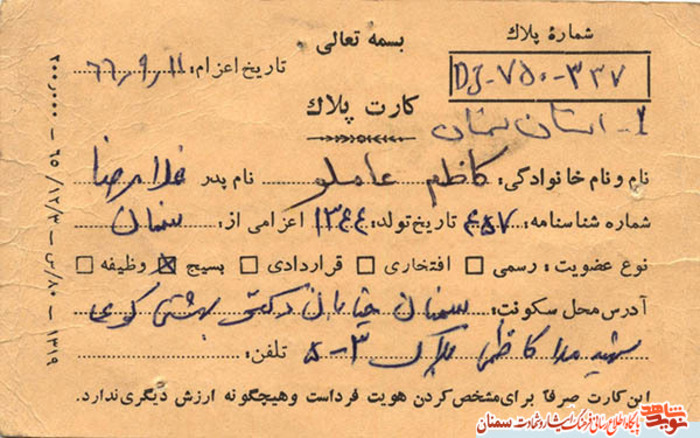 بسمه تعالی
شمارهٔ پلاك
DJ-۷۵۰-۳۳۷
تاریخ اعزام: ۶۶,۹,۱۱
کارت پلاك
استان سمنان
نام و نام خانوادگی: کاظم عاملو نام پدر غلامرضا
شماره شناسنامه: ۴۵۷ تاریخ تولد: ۱۳۴۴ اعزامی از: سمنان
نوع عضویت: رسمی □ افتخاری □ قراردادی □ بسیج ☒ وظیفه □
آدرس محل سکونت: سمنان خیابان دکتر بهشتی کوی
شهید ملا کاظمی پلاک ۳-۵ تلفن:
این کارت صرفاً برای مشخص کردن هویت فرد است و هیچگونه ارزش دیگری ندارد.
۲۰۰,۰۰۰ - ۶۵/۱۲/۳ - س/۸۰ - ۱۳۱۹
نوید شاهد
پایگاه اطلاع رسانی فرهنگ ایثار و شهادت سمنان